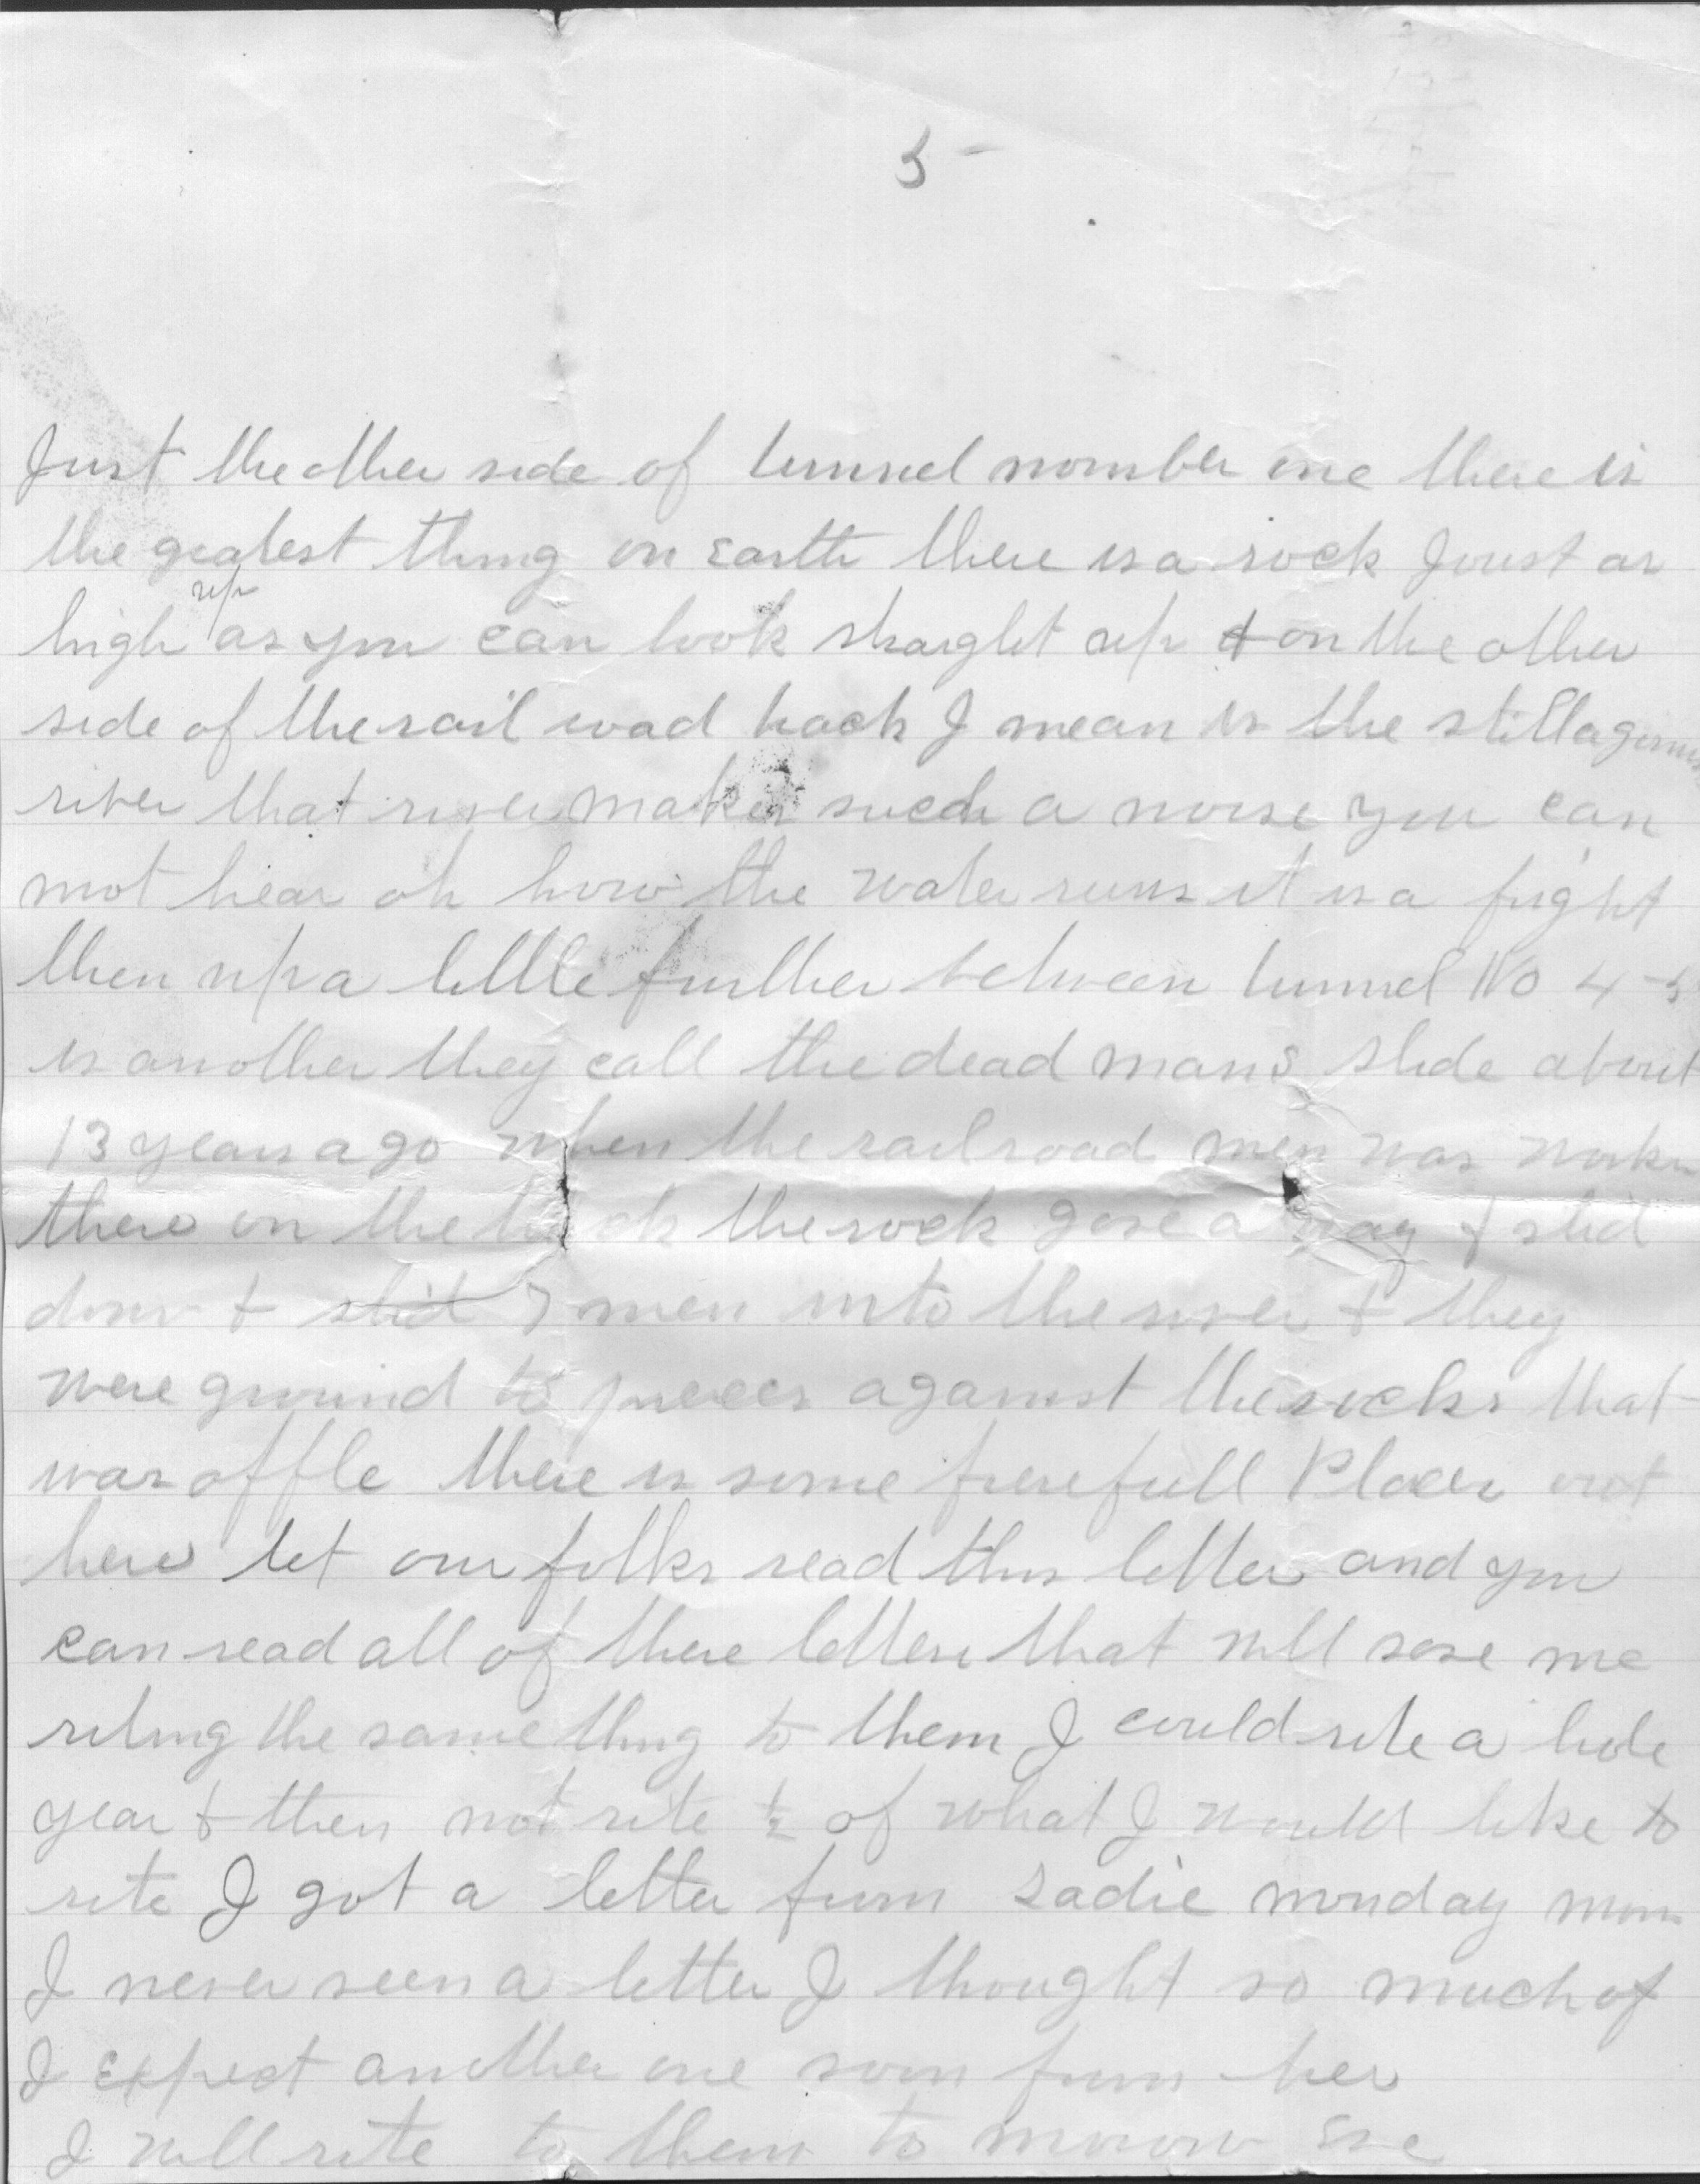 5-
Just the other side of tunnel nomber one there is
the geatest thing on earth there is a rock Joust as
high up as you can look straight up & on the other
side of the rail road track I mean is the stillagomis
river that river makes such a noise you can
not hear oh how the water runs it is a fright
then up a little further between tunnel No 4-5
is another they call the dead mans slide about
13 years ago when the railroad men was workn
there on the track the rock gave a way & slid
down & slid 7 men into the river & they
were ground to pieces against the rocks that
was offle there is some firefull Places out
here let our folks read this letter and you
can read all of there letters that will save me
riting the same thing to them I could rite a hole
year & then not rite ½ of what I would like to
rite I got a letter frum Sadie monday morn
I never seen a letter I thought so much of
I expect another one soon frum her
I will rite to them to morrow eve